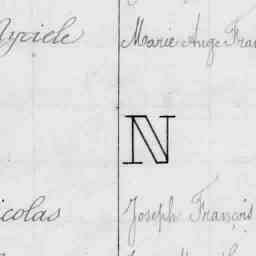 Marie Ange Fran
N
icolas Joseph François